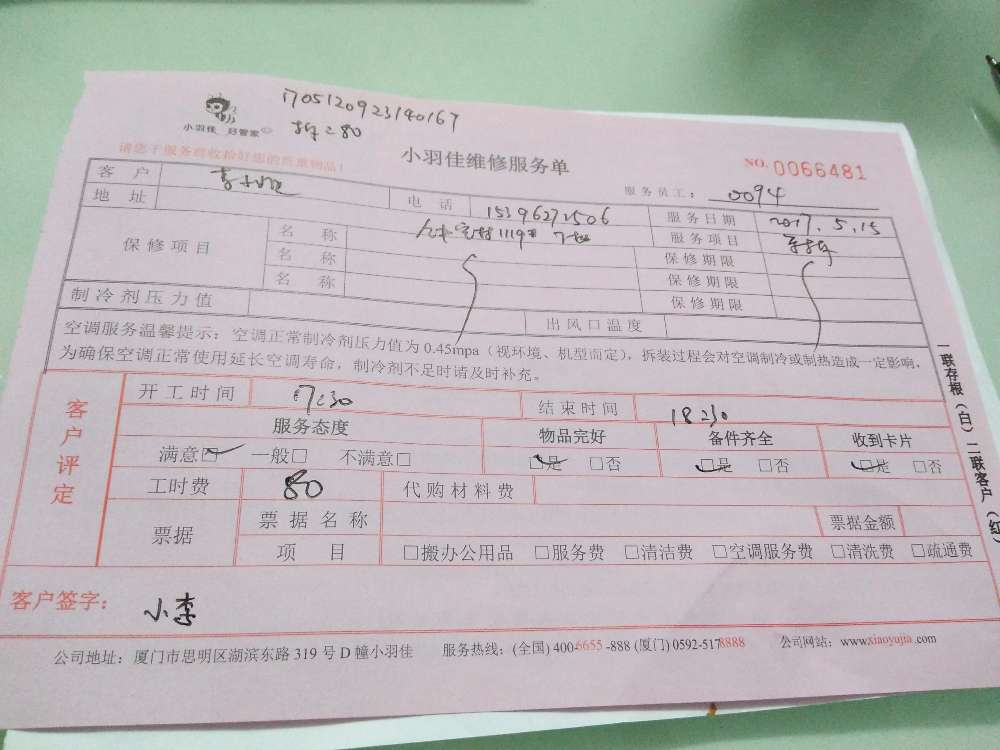 1705120923190167
小羽佳 好管家
80
小羽佳维修服务单
NO. 0066481
请您于服务前收拾好您的贵重物品！
服务员工： 0094
客 户 电 话 15396272506 服务日期 2017.5.15
地 址 1119
保修项目 名 称 服务项目
名 称 保修期限
名 称 保修期限
保修期限
制冷剂压力值 出风口温度
空调服务温馨提示：空调正常制冷剂压力值为 0.45mpa（视环境、机型而定），拆装过程会对空调制冷或制热造成一定影响，
为确保空调正常使用延长空调寿命，制冷剂不足时请及时补充。
客户评定
开工时间 17:30 结束时间 18:30
服务态度 物品完好 备件齐全 收到卡片
满意□ 一般□ 不满意□ □是 □否 □是 □否 □是 □否
工时费 80 代购材料费
票据 票据名称 票据金额
项 目 □搬办公用品 □服务费 □清沽费 □空调服务费 □清洗费 □疏通费
客户签字： 小李
公司地址：厦门市思明区湖滨东路 319 号 D 幢小羽佳 服务热线：(全国) 400-6655-888 (厦门) 0592-5178888 公司网站：www.xiaoyujia.com
一联存根（白）二联客户（红）